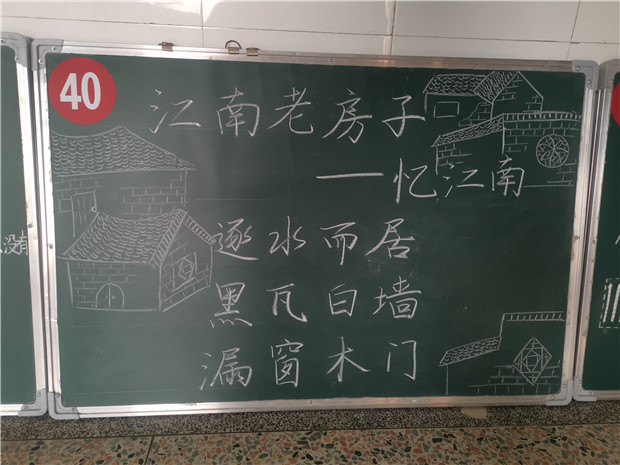 40
江南老房子
——忆江南
逐水而居
黑瓦白墙
漏窗木门
没有